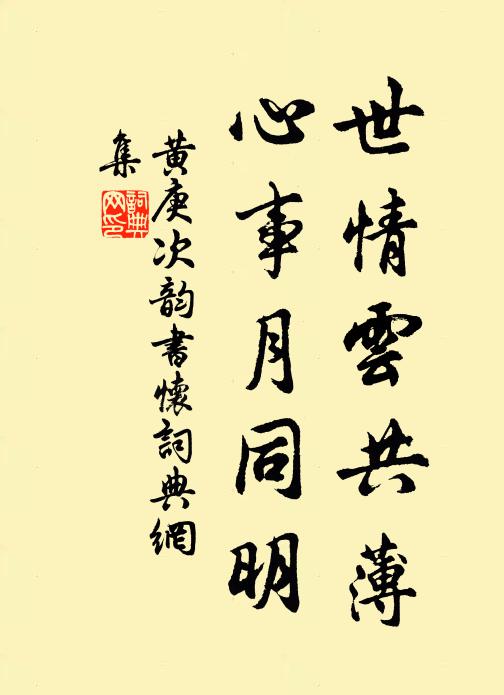 世情雲共薄
心事月同明
黄庚次韵書懷詞典網
集
詞典
网印